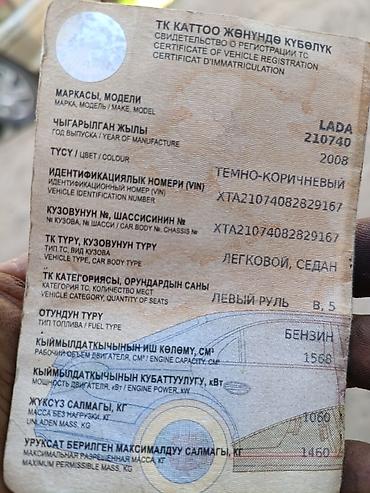 ТК КАТТОО ЖӨНҮНДӨ КҮБӨЛҮК
СВИДЕТЕЛЬСТВО О РЕГИСТРАЦИИ ТС
CERTIFICATE OF VEHICLE REGISTRATION
CERTIFICAT D'IMMATRICULATION
МАРКАСЫ, МОДЕЛИ
МАРКА, МОДЕЛЬ / MAKE, MODEL
LADA
210740
ЧЫГАРЫЛГАН ЖЫЛЫ
ГОД ВЫПУСКА / YEAR OF MANUFACTURE
2008
ТҮСҮ / ЦВЕТ / COLOUR
ТЕМНО-КОРИЧНЕВЫЙ
ИДЕНТИФИКАЦИЯЛЫК НОМЕРИ (VIN)
ИДЕНТИФИКАЦИОННЫЙ НОМЕР (VIN)
VEHICLE IDENTIFICATION NUMBER
XTA21074082829167
КУЗОВУНУН №, ШАССИСИНИН №
№ КУЗОВА, № ШАССИ / CAR BODY №, CHASSIS №
XTA21074082829167
ТК ТҮРҮ, КУЗОВУНУН ТҮРҮ
ТИП ТС, ВИД КУЗОВА
VEHICLE TYPE, CAR BODY TYPE
ЛЕГКОВОЙ, СЕДАН
ТК КАТЕГОРИЯСЫ, ОРУНДАРДЫН САНЫ
КАТЕГОРИЯ ТС, КОЛИЧЕСТВО МЕСТ
VEHICLE CATEGORY, QUANTITY OF SEATS
ЛЕВЫЙ РУЛЬ B, 5
ОТУНДУН ТҮРҮ
ТИП ТОПЛИВА / FUEL TYPE
БЕНЗИН
КЫЙМЫЛДАТКЫЧЫНЫН ИШ КӨЛӨМҮ, СМ³
РАБОЧИЙ ОБЪЕМ ДВИГАТЕЛЯ, СМ³ / ENGINE CAPACITY, СМ³
1568
КЫЙМЫЛДАТКЫЧЫНЫН КУБАТТУУЛУГУ, кВт
МОЩНОСТЬ ДВИГАТЕЛЯ, кВт / ENGINE POWER, KW
ЖҮКСҮЗ САЛМАГЫ, КГ
МАССА БЕЗ НАГРУЗКИ, КГ
UNLADEN MASS, KG
1060
УРУКСАТ БЕРИЛГЕН МАКСИМАЛДУУ САЛМАГЫ, КГ
МАКСИМАЛЬНАЯ РАЗРЕШЕННАЯ МАССА, КГ
MAXIMUM PERMISSIBLE MASS, KG
1460